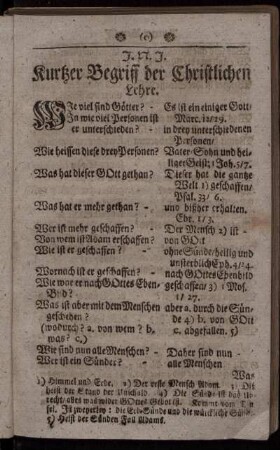 (o)
J. N. J.
Kurtzer Begriff der Christlichen
Lehre.
Wie viel sind Götter? - Es ist ein einiger Gott/
Marc. 12/29.
In wie viel Personen ist - in drey unterschiedenen
er unterschieden? Personen/
Wie heissen diese drey Personen? Vater/Sohn und hei-
liger Geist; 1 Joh. 5/7.
Was hat dieser GOtt gethan? Dieser hat die gantze
Welt 1) geschaffen/
Psal. 33/ 6.
Was hat er mehr gethan? - und bisher erhalten.
Ebr. 1/3.
Wer ist mehr geschaffen? - Der Mensch 2) ist-
Von wem ist Adam erschaffen? - von GOtt
Wie ist er geschaffen? - ohne Sünde/heilig und
unsterblich Eph. 4/4-
Wornach ist er geschaffen? - nach GOttes Ebenbild
Wie wor er nach GOttes Eben- geschaffen/ 3) 1 Mos.
Bild? 1/ 27.
Was ist aber mit dem Menschen aber a. durch die Sün-
geschehen? de 4) b. von GOtt
(wodurch? a. von wem? b. c. abgefallen. 5)
was? c.)
Wie sind nun alle Menschen? - Daher sind nun
Wer ist ein Sünder? - alle Menschen
Was
1) Himmel und Erde. 2) Der erste Mensch Adam. 3) Dis
heist der Stand der Unschuld. 4) Die Sünde ist das Un-
recht/ oder was wider GOttes Gebot ist. Kommt vom Teu-
fel. Ist zweyerley: die Erb-Sünde und die würckliche Sünde.
5) Heist der Sünden Fall Adams.